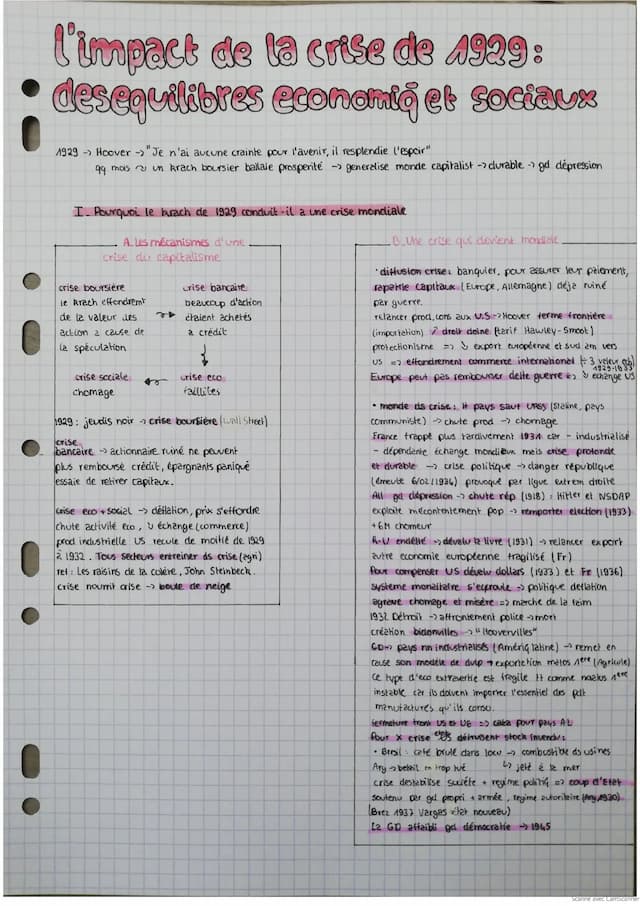 l'impact de la crise de 1929 :
desequilibres economiq̄ et sociaux
1929 → Hoover → "Je n'ai aucune crainte pour l'avenir, il resplendie l'espoir"
qq mois un krach boursier ballaie prosperité → generalise monde capitalist → durable → gd dépression
I - Pourquoi le krach de 1929 conduit-il a une crise mondiale
A. Les mécanismes d'une
crise du capitalisme
crise boursière
le krach effondrement
de la valeur des
action a cause de
la spéculation
crise bancaire
beaucoup d'action
étaient achetés
a crédit
crise sociale
chomage
crise eco
faillites
1929 : jeudis noir → crise boursière (wall street)
crise
bancaire → actionnaire ruiné ne peuvent
plus remboursé crédit, épargnants paniqué
essaie de retirer capitaux.
crise eco + social → déflation, prix s'effondre
chute activité eco, ↓ échange (commerce)
prod industrielle US recule de moitié de 1929
à 1932. Tous secteurs entreiner ds crise (agri)
ref : Les raisins de la colère, John Steinbeck.
crise nourrit crise → boule de neige
B. Une crise qui devient mondiale
• diffusion crise : banquier, pour assurer leur paiement,
rapatrie capitaux (Europe, Allemagne) déjà ruiné
par guerre.
relancer prod, ions aux U.S → Hoover ferme frontière
(importation) ↗ droit doine (tarif Hawley-Smoot)
protectionisme => ↓ export européenne et sud am vers
US => effondrement commerce international (÷ 3 valeur
1929-1933
Europe peut pas rembourser dette guerre => ↓ échange US
• monde ds crise : tt pays sauf URSS (Staline, pays
communiste) → chute prod → chomage
France frappé plus tardivement 1931 car - industrialisé
- dépendante échange mondiaux mais crise profonde
et durable → crise politique → danger république
(émeute 6/02/1934) provoqué par ligue extrem droite
All gd dépression → chute rép (1918) : Hitler et NSDAP
exploite mécontentement pop → remporter election (1933)
+ 6M chomeur
R-U endetté → dévalu la livre (1931) → relancer export
autre economie européenne fragilisé (Fr)
Pour compenser US dévalu dollars (1933) et Fr (1936)
système monaitaire s'ecproule → politique deflation
agrave chomage et misère => marche de la faim
1932 Détroit → affrontement police → mort
création bidonvilles → "Hoovervilles"
GD → pays nn industrialisés (Amériq latine) → remet en
cause son modèle de dvlp → exportation matos 1ère (Agricole)
Ce type d'eco extravertie est fragile tt comme matos 1ère
instable car ils doivent importer l'essentiel des pdt
manufacturés qu'ils conso.
fermeture front US et UE => cata pour pays AL
Pour ✗ crise états détruisent stock invendu :
• Bresil : café brulé dans loco → combustible ds usines
Arg → betail trop tué ↳ jeté à la mer
crise destabilise société + regime politiq => coup d'Etat
soutenu par gd propri + armée, regime autoritaire (Arg 1930)
(Brez 1937 Vargas état nouveau)
La GD affaibli gd démocratie → 1945
Scanné avec CamScanner